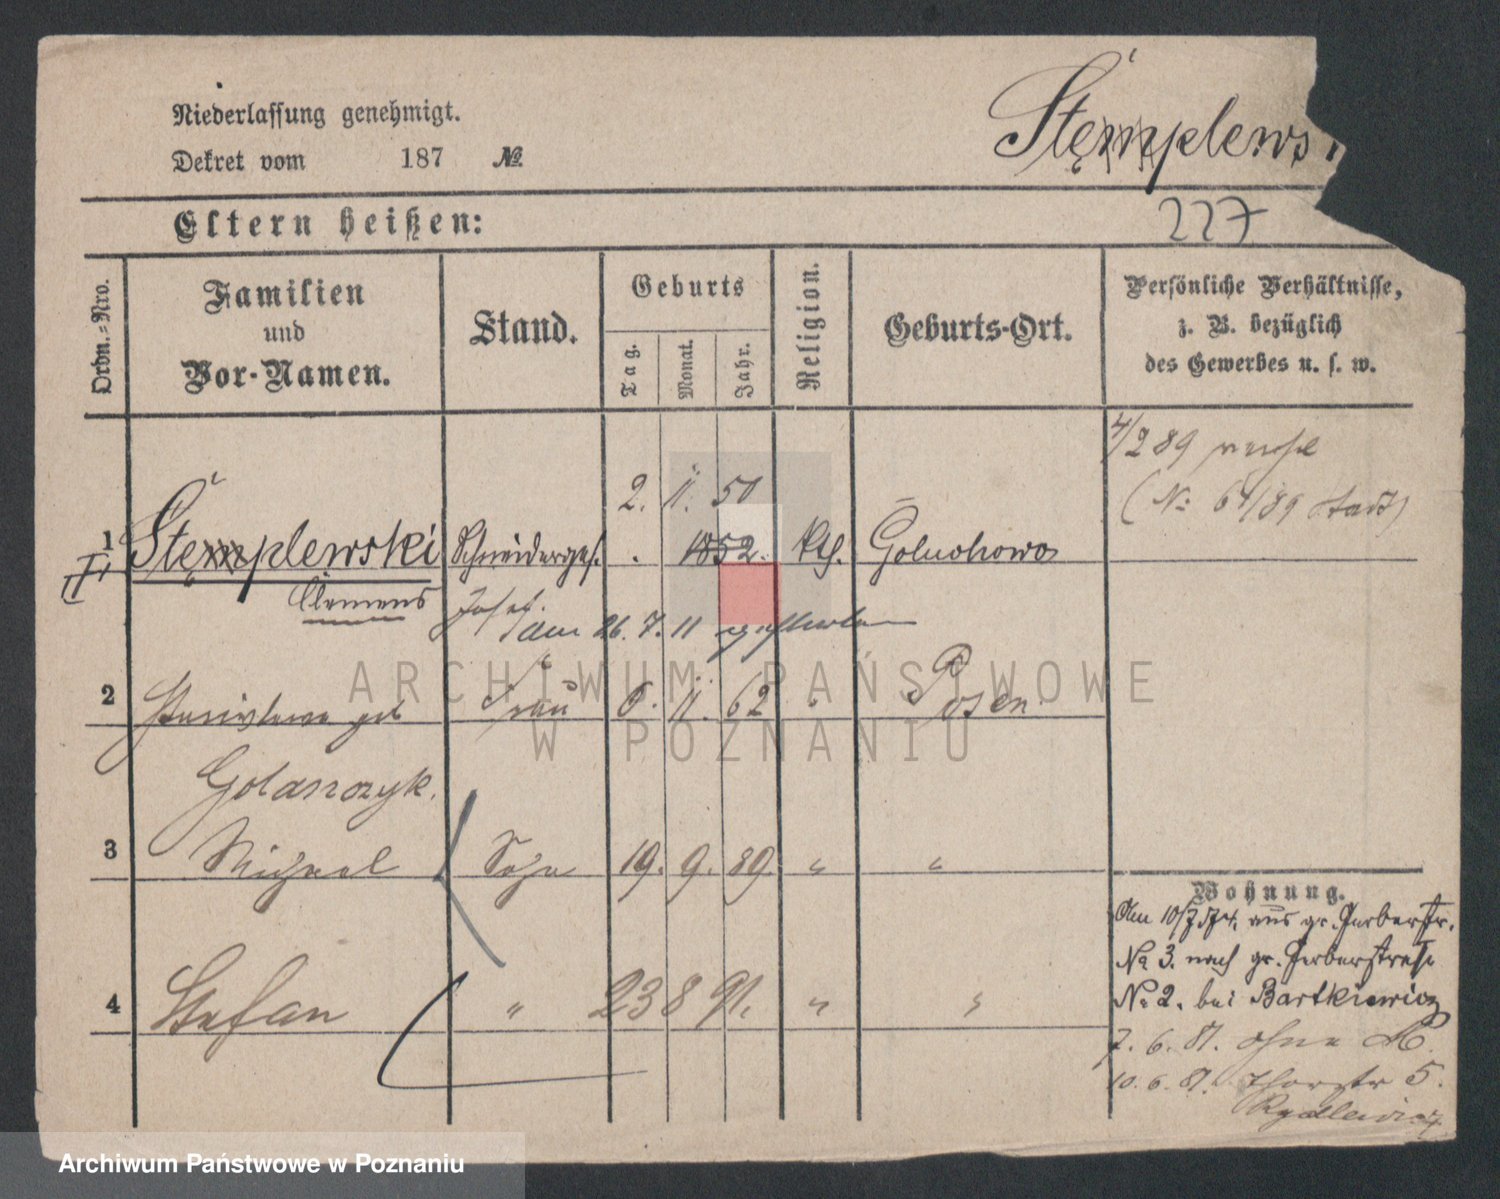 Niederlassung genehmigt.
Dekret vom 187 №
Stęmplews
Eltern heißen:
227
Ordn.=Nro.
Familien
und
Vor-Namen.
Stand.
Geburts
Tag.
Monat.
Jahr.
Religion.
Geburts-Ort.
Persönliche Verhältnisse,
z. B. bezüglich
des Gewerbes u. s. w.
4/2 89
(№ 64/89 Stadt)
2. 11. 50
1 Stęmplewski Schneiderges. 1852. kth. Goluchowo
Clemens
Josef.
am 26. 7. 11 gestorben
2 Stanislawa geb Frau 6. 11. 62 " Posen
Golanczyk.
3 Michael Sohn 19. 9. 89 " "
4 Stefan " 23 8 91. " "
Wohnung.
Am 10/7 74. aus gr. Gerberstr.
№ 3. nach gr. Gerberstraße
№ 2. bei Bartkiewicz
7. 6. 81. ohne
10. 6. 81. Thorstr 5.
Rydlewicz
ARCHIWUM PAŃSTWOWE
W POZNANIU
Archiwum Państwowe w Poznaniu